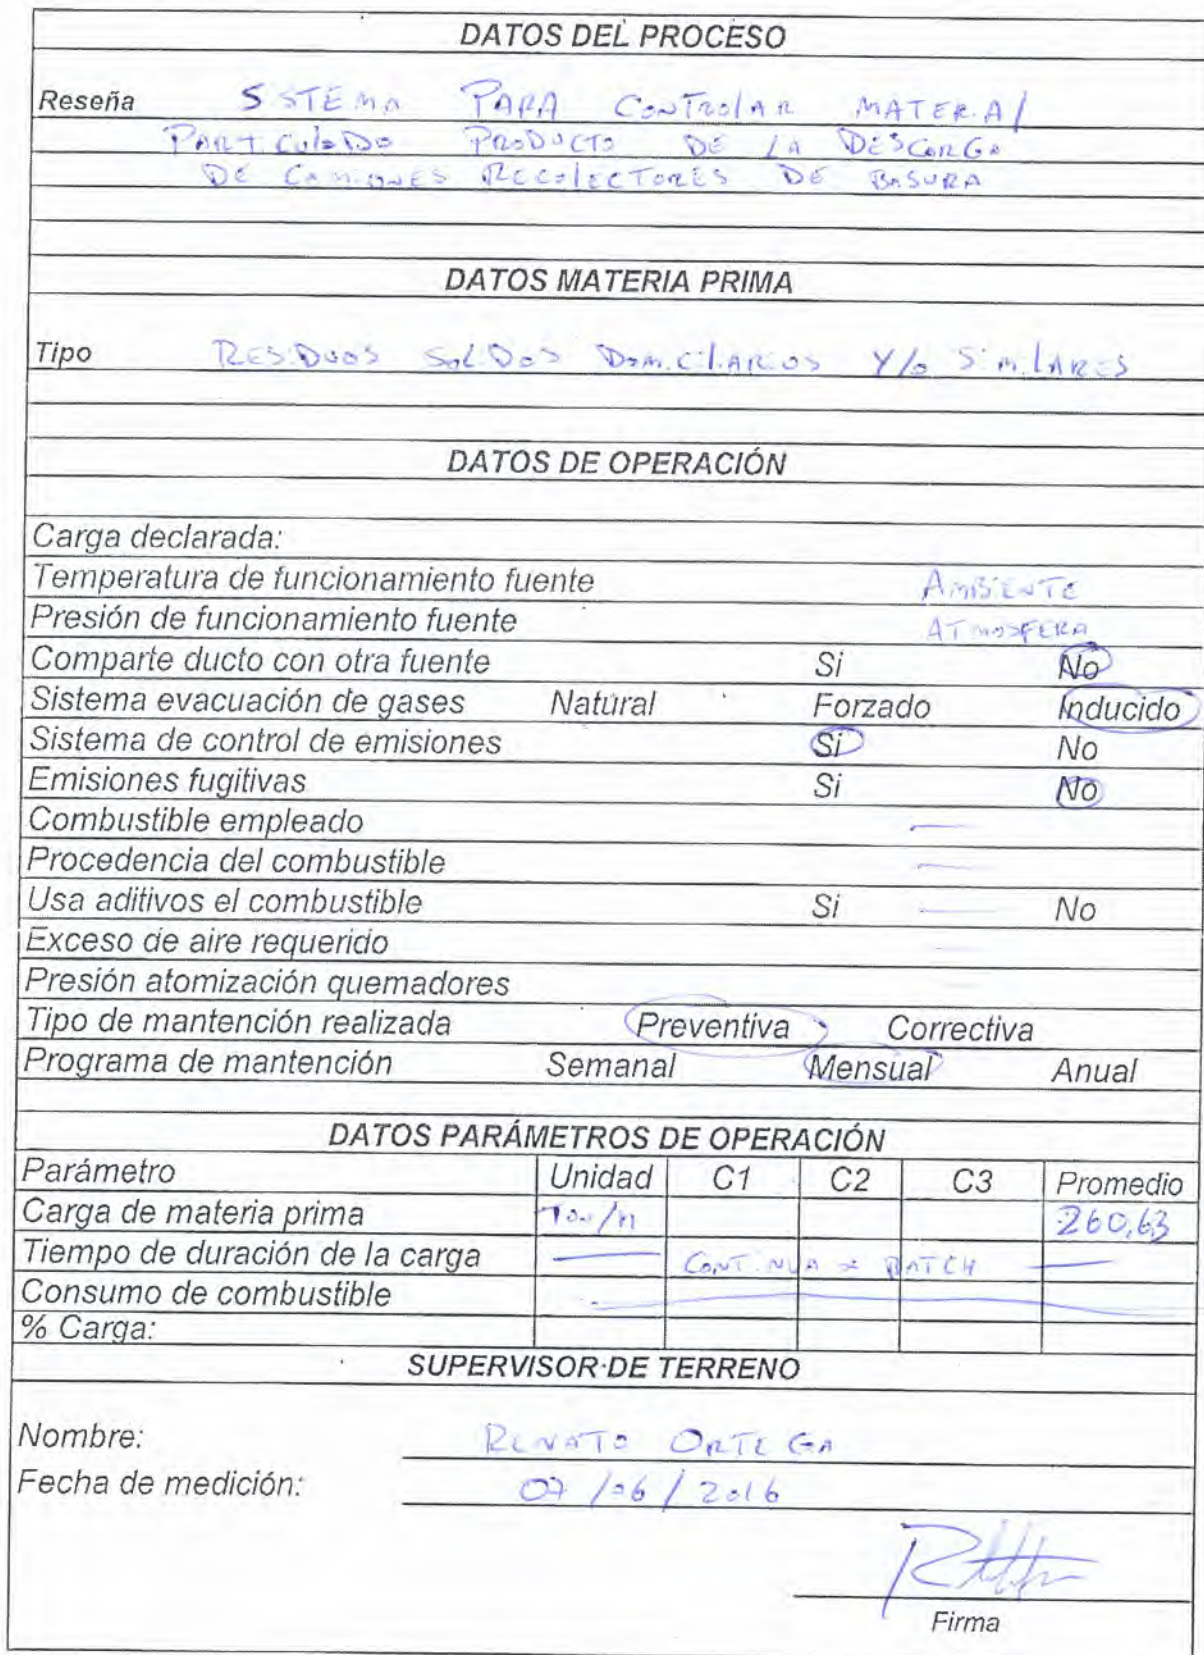 DATOS DEL PROCESO
Reseña SISTEMA PARA CONTROLAR MATERIAL
PARTICULADO PRODUCTO DE LA DESCARGA
DE CAMIONES RECOLECTORES DE BASURA
DATOS MATERIA PRIMA
Tipo RESIDUOS SOLIDOS DOMICILIARIOS Y/o SIMILARES
DATOS DE OPERACIÓN
Carga declarada:
Temperatura de funcionamiento fuente AMBIENTE
Presión de funcionamiento fuente ATMOSFERA
Comparte ducto con otra fuente Si No
Sistema evacuación de gases Natural Forzado Inducido
Sistema de control de emisiones Si No
Emisiones fugitivas Si No
Combustible empleado —
Procedencia del combustible —
Usa aditivos el combustible Si — No
Exceso de aire requerido —
Presión atomización quemadores
Tipo de mantención realizada Preventiva Correctiva
Programa de mantención Semanal Mensual Anual
DATOS PARÁMETROS DE OPERACIÓN
Parámetro Unidad C1 C2 C3 Promedio
Carga de materia prima Ton/h 260,63
Tiempo de duración de la carga — CONTINUA BATCH —
Consumo de combustible —
% Carga:
SUPERVISOR DE TERRENO
Nombre: RENATO ORTEGA
Fecha de medición: 07/06/2016
Firma